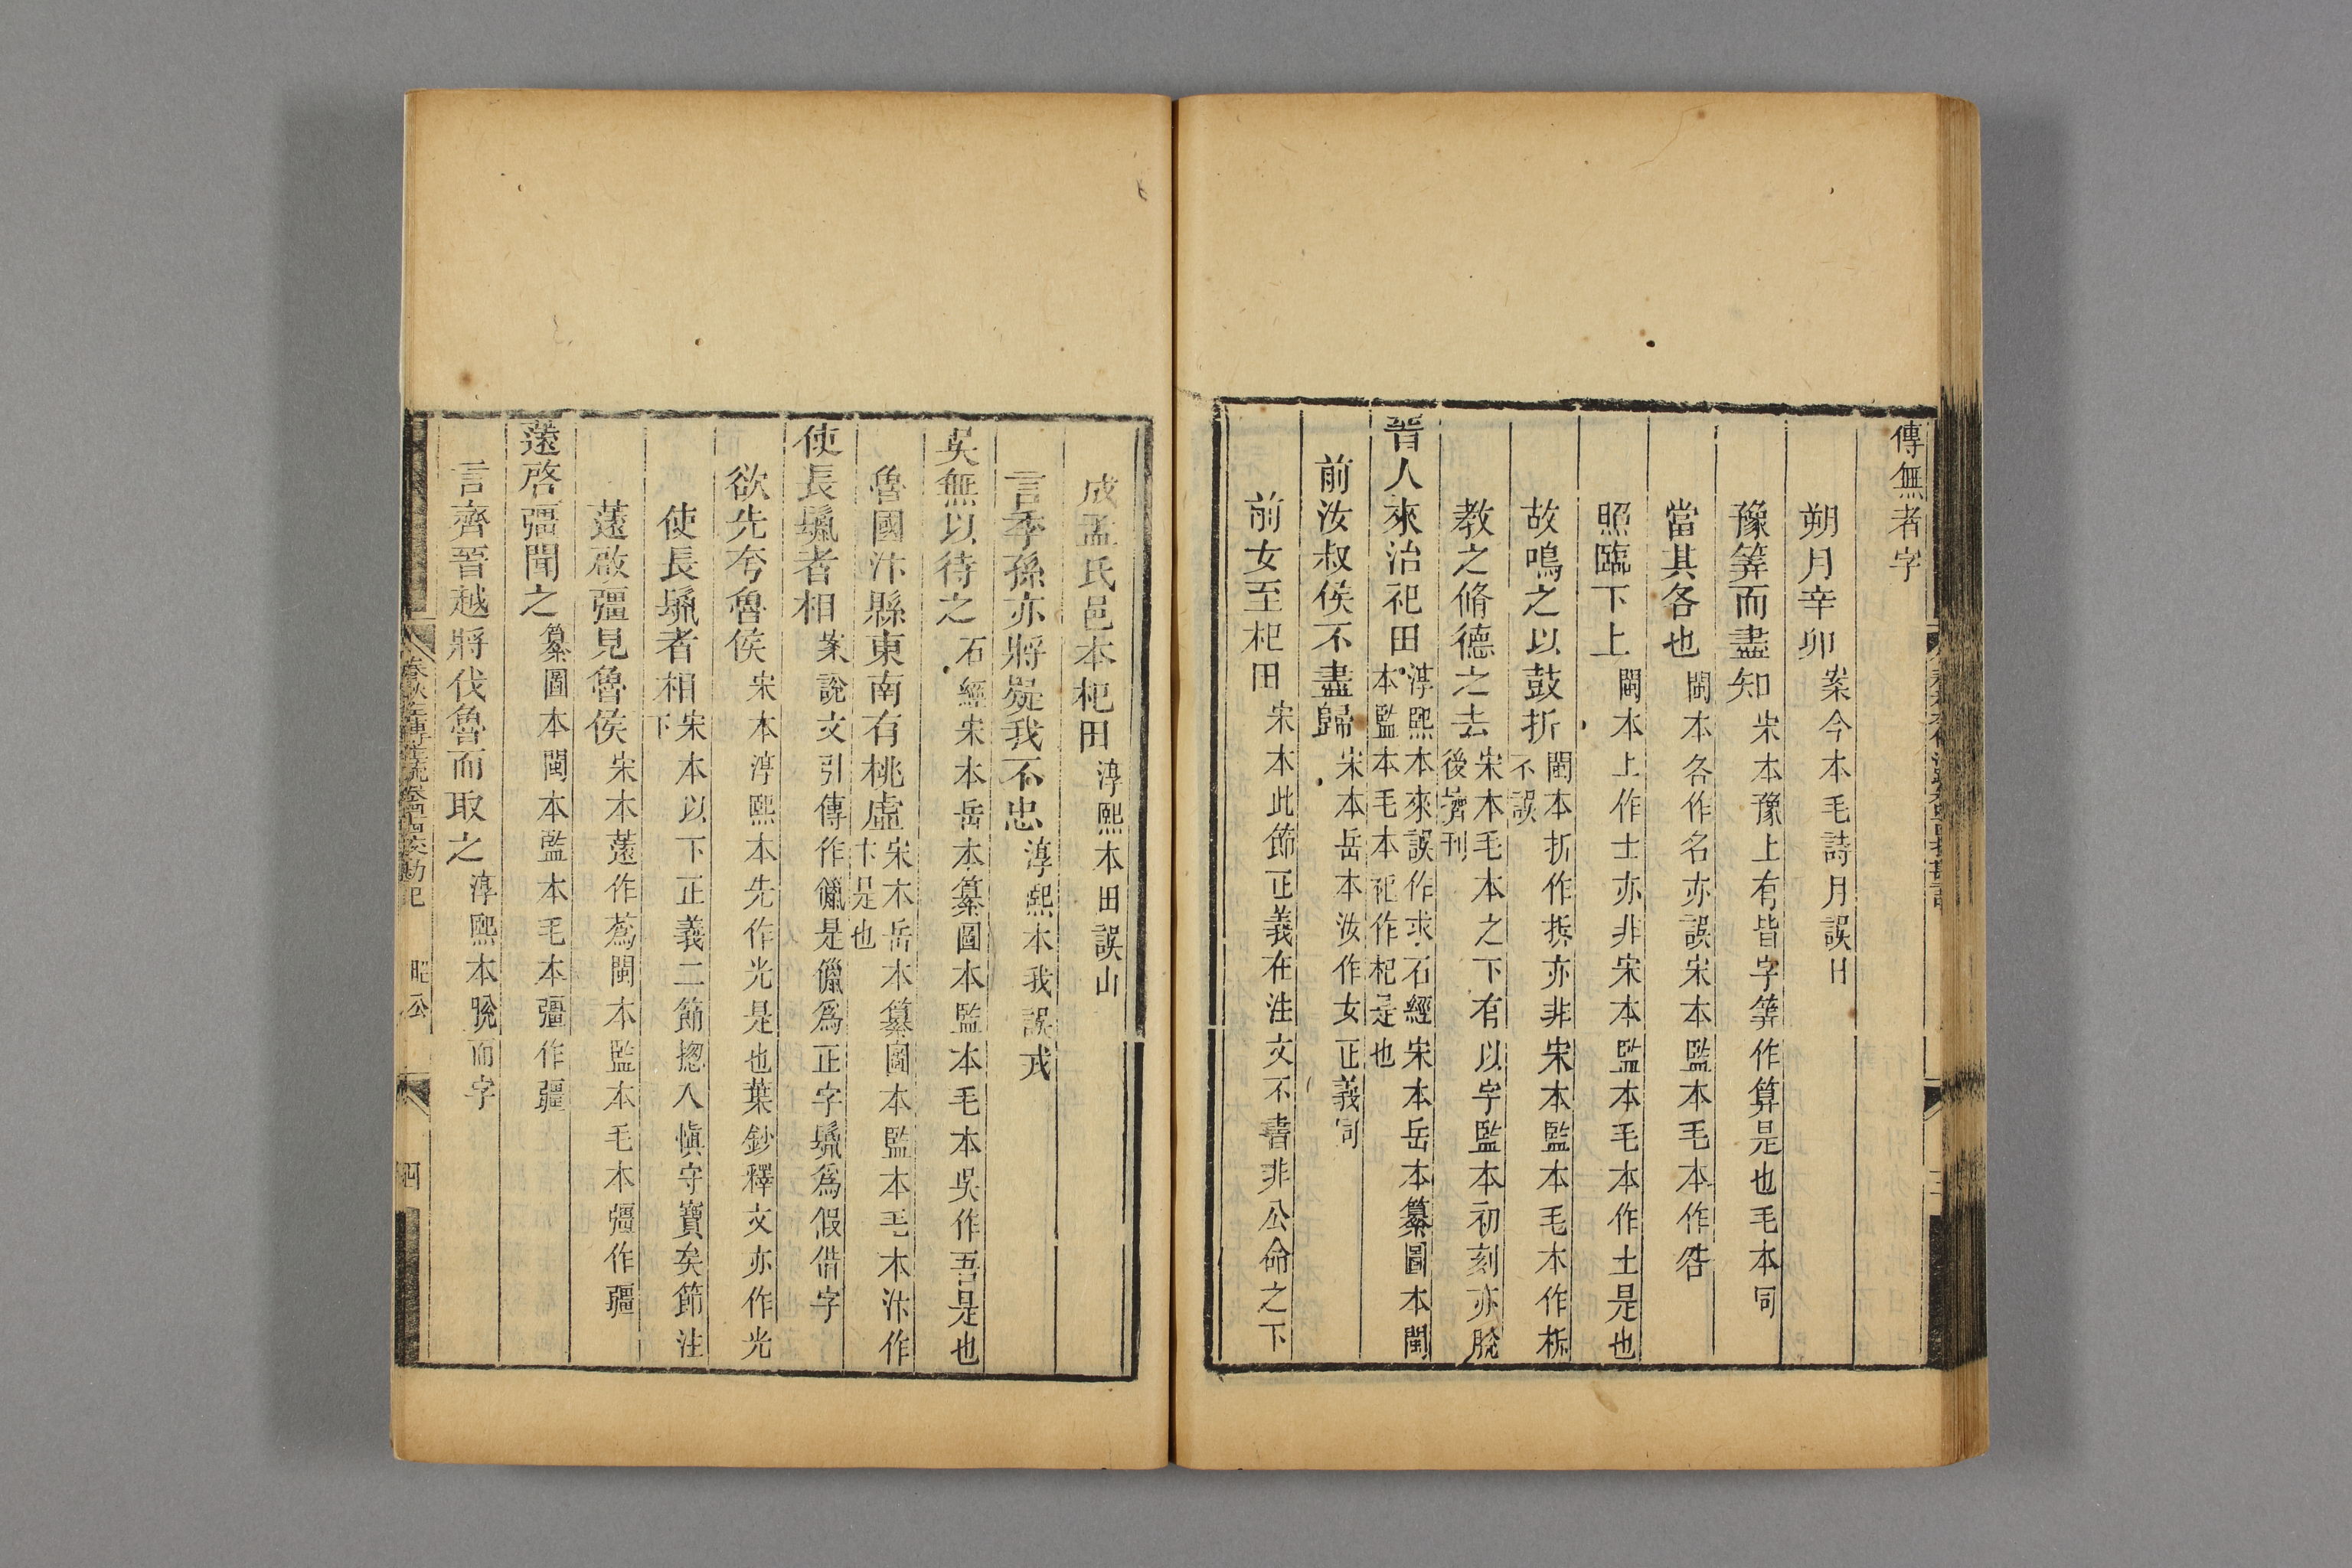 傳無者字
朔月辛卯案今本毛詩月誤日
豫筭而盡知宋本豫上有皆字筭作算是也毛本同
當其各也閩本各作名亦誤宋本監本毛本作咎
照臨下上閩本上作士亦非宋本監本毛本作土是也
故鳴之以鼓折閩本折作拆亦非宋本監本毛本作柝
不誤
教之脩德之去宋本毛本之下有以字監本初刻亦脫
後擠刊
晉人來治祀田淳熙本來誤作求石經宋本岳本纂圖本閩
本監本毛本祀作杞是也
前汝叔侯不盡歸宋本岳本汝作女正義同
前女至杞田宋本此節正義在注文不書非公命之下
成孟氏邑本杞田淳熙本田誤山
言季孫亦將疑我不忠淳熙本我誤戎
吳無以待之石經宋本岳本纂圖本監本毛本吳作吾是也
魯國汴縣東南有桃虛宋本岳本纂圖本監本毛本汴作
卞是也
使長鬛者相案說文引傳作儠是儠爲正字鬛爲假借字
欲先夸魯侯宋本淳熙本先作光是也葉鈔釋文亦作光
使長鬛者相宋本以下正義二節揔入愼守寶矣節注
下
薳啟彊見魯侯宋本薳作蒍閩本監本毛本彊作疆
薳啓彊聞之纂圖本閩本監本毛本彊作疆
言齊晉越將伐魯而取之淳熙本脫而字
昭公
四